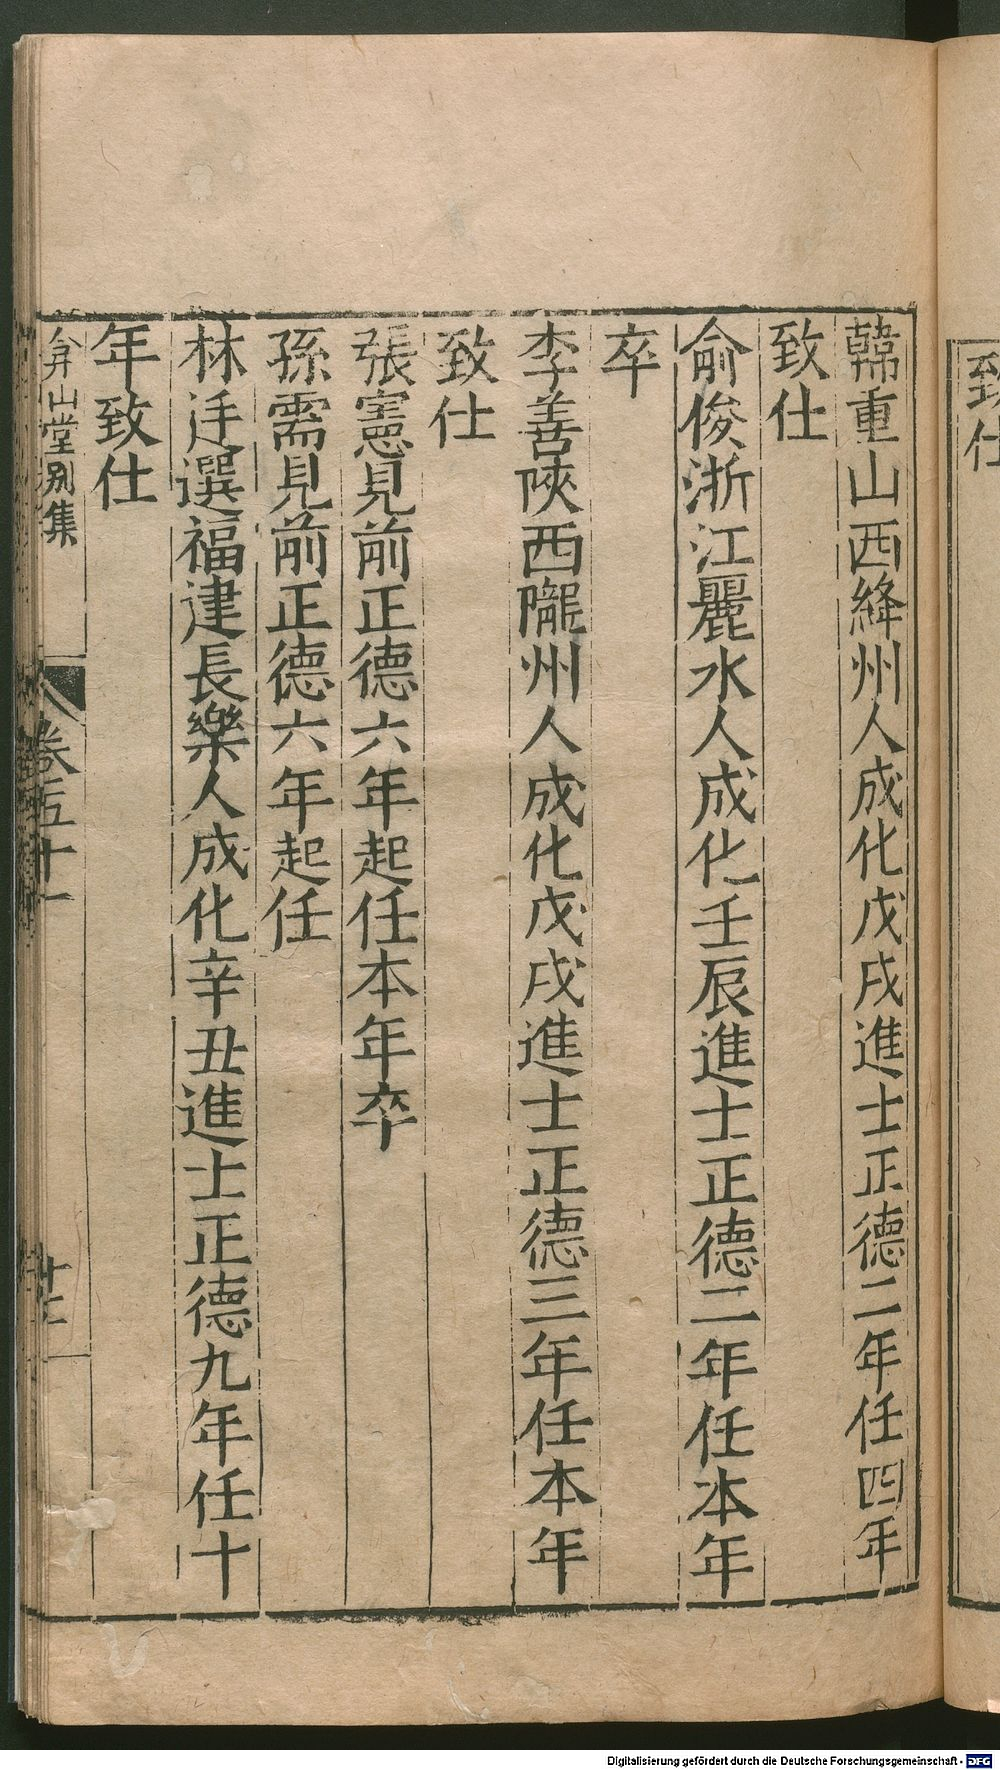 致仕
韓重山西絳州人成化戊戌進士正德二年任四年
致仕
俞俊浙江麗水人成化壬辰進士正德二年任本年
卒
李善陝西隴州人成化戊戌進士正德三年任本年
致仕
張憲見前正德六年起任本年卒
孫需見前正德六年起任
林泮選福建長樂人成化辛丑進士正德九年任十
年致仕
弇山堂别集
卷五十一
Digitalisierung gefördert durch die Deutsche Forschungsgemeinschaft - DFG